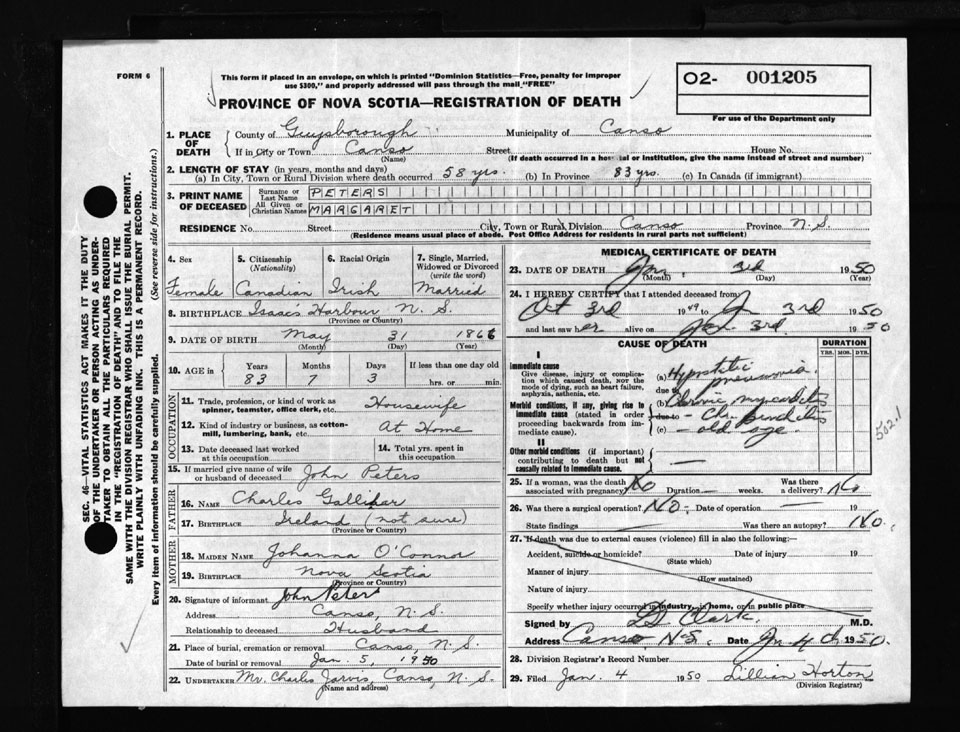 FORM 6
This form if placed in an envelope, on which is printed "Dominion Statistics—Free, penalty for improper
use $300," and properly addressed will pass through the mail "FREE"
PROVINCE OF NOVA SCOTIA—REGISTRATION OF DEATH
O2- 001205
For use of the Department only
SEC. 46—VITAL STATISTICS ACT MAKES IT THE DUTY
OF THE UNDERTAKER OR PERSON ACTING AS UNDER-
TAKER TO OBTAIN ALL THE PARTICULARS REQUIRED
IN THE "REGISTRATION OF DEATH" AND TO FILE THE
SAME WITH THE DIVISION REGISTRAR WHO SHALL ISSUE THE BURIAL PERMIT.
WRITE PLAINLY WITH UNFADING INK. THIS IS A PERMANENT RECORD.
Every item of information should be carefully supplied. (See reverse side for instructions.)
1. PLACE OF DEATH
County of Guysborough Municipality of Canso
If in City or Town Canso Street House No.
(Name) (If death occurred in a hospital or institution, give the name instead of street and number)
2. LENGTH OF STAY (in years, months and days)
(a) In City, Town or Rural Division where death occurred 58 yrs. (b) In Province 83 yrs. (c) In Canada (if immigrant)
3. PRINT NAME OF DECEASED
Surname or Last Name PETERS
All Given or Christian Names MARGARET
RESIDENCE No. Street City, Town or Rural Division Canso Province N.S.
(Residence means usual place of abode. Post Office Address for residents in rural parts not sufficient)
4. Sex Female
5. Citizenship (Nationality) Canadian
6. Racial Origin Irish
7. Single, Married, Widowed or Divorced (write the word) Married
8. BIRTHPLACE Isaac's Harbour N. S.
(Province or Country)
9. DATE OF BIRTH May 31 1866
(Month) (Day) (Year)
10. AGE IN Years Months Days If less than one day old
83 7 3 hrs. or min.
OCCUPATION
11. Trade, profession, or kind of work as spinner, teamster, office clerk, etc. Housewife
12. Kind of industry or business, as cotton-mill, lumbering, bank, etc. At Home
13. Date deceased last worked at this occupation
14. Total yrs. spent in this occupation
15. If married give name of wife or husband of deceased John Peters
FATHER
16. NAME Charles Gallihar
17. BIRTHPLACE Ireland (not sure)
(Province or Country)
MOTHER
18. MAIDEN NAME Johanna O'Connor
19. BIRTHPLACE Nova Scotia
(Province or Country)
20. Signature of informant John Peters
Address Canso, N.S.
Relationship to deceased Husband
21. Place of burial, cremation or removal Canso, N. S.
Date of burial or removal Jan. 5, 1950
22. UNDERTAKER Mr. Charles Jarvis, Canso, N. S.
(Name and address)
MEDICAL CERTIFICATE OF DEATH
23. DATE OF DEATH Jan. 3rd 1950
(Month) (Day) (Year)
24. I HEREBY CERTIFY that I attended deceased from
Oct 3rd 1949 to J 3rd 1950
and last saw her alive on Jan 3rd 1950
CAUSE OF DEATH
DURATION
YRS. MOS. DYS.
I
Immediate cause
Give disease, injury or complication which caused death, not the mode of dying, such as heart failure, asphyxia, asthenia, etc.
(a) Hypostatic pneumonia
due to
Morbid conditions, if any, giving rise to immediate cause (stated in order proceeding backwards from immediate cause).
(b) Chronic myocarditis
due to - Ch. Bronchitis
(c) - old age
502.1
II
Other morbid conditions (if important) contributing to death but not causally related to immediate cause. —
25. If a woman, was the death associated with pregnancy? No Duration weeks. Was there a delivery? No
26. Was there a surgical operation? No Date of operation — 19
State findings — Was there an autopsy? No.
27. If death was due to external causes (violence) fill in also the following:—
Accident, suicide or homicide? Date of injury 19
(State which)
Manner of injury
(How sustained)
Nature of injury
Specify whether injury occurred in industry, in home, or in public place
Signed by Clark. M.D.
Address Canso, N.S. Date Jan 4th 1950.
28. Division Registrar's Record Number
29. Filed Jan. 4 1950 Lillian Horton
(Division Registrar)